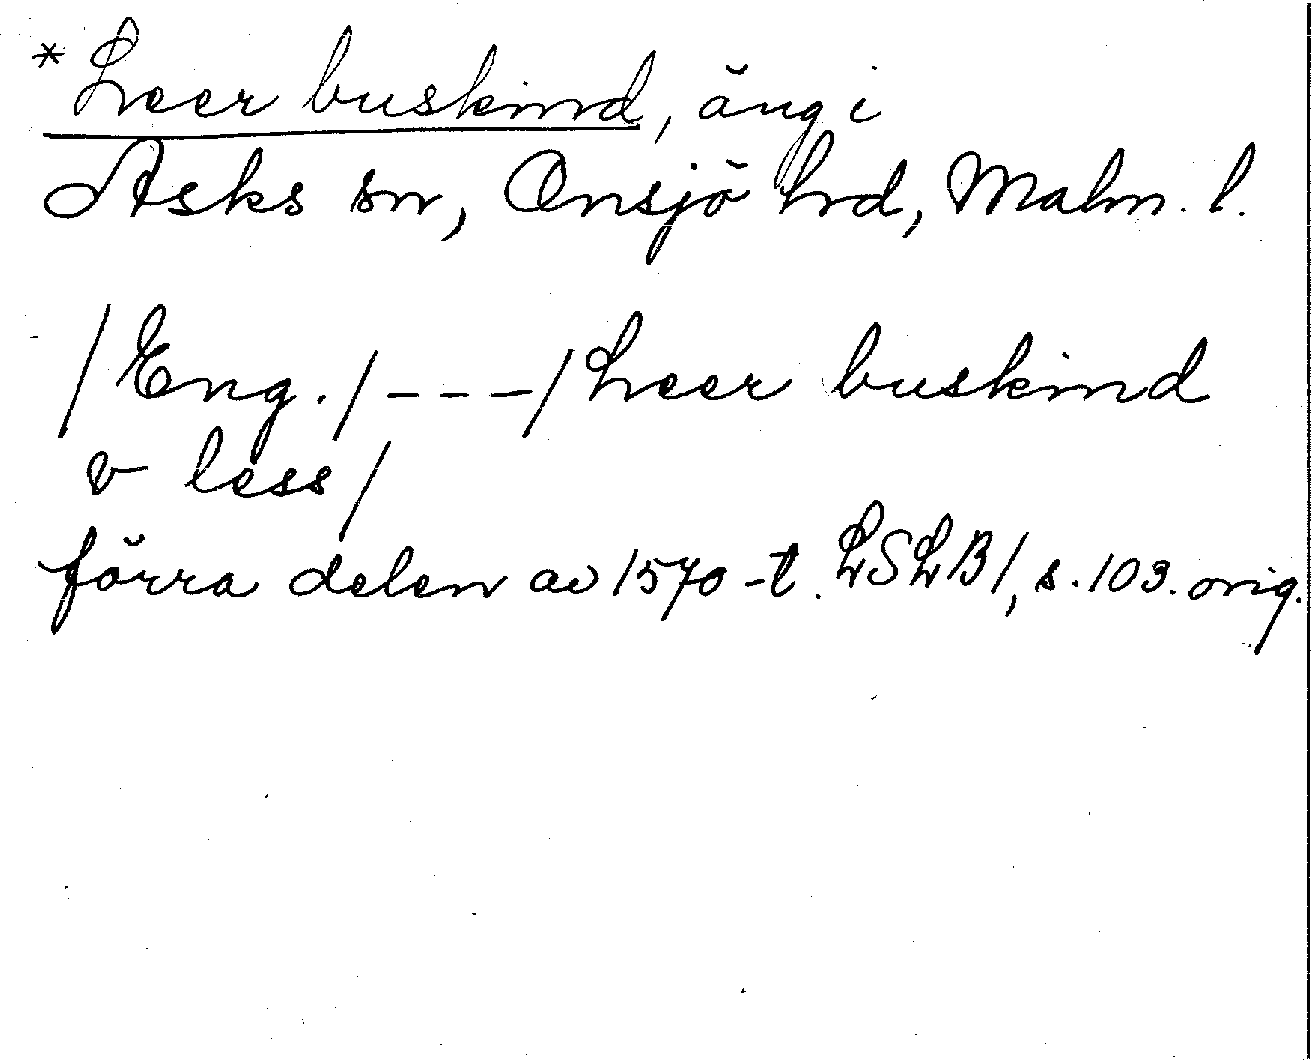 *Leer buskind, äng i
Asks sn, Onsjö hrd, Malm. l.
/Eng./ - - - /Leer buskind
v less/
förra delen av 1570-t. LSLB1, s. 103. orig.